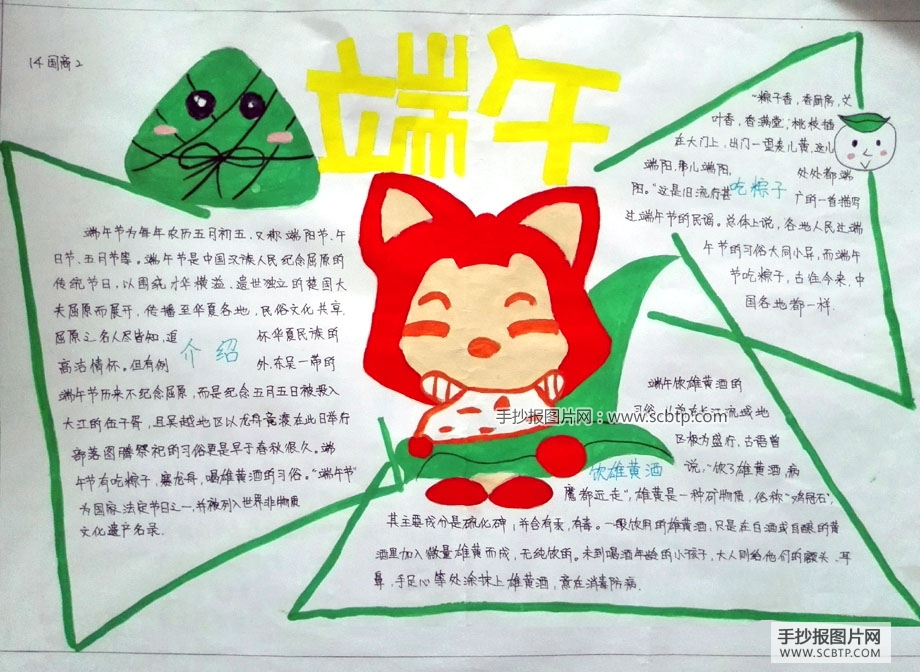 14国商2
端午
端午节为每年农历五月初五,又称端阳节、午
日节、五月节等。端午节是中国汉族人民纪念屈原的
传统节日,以围绕才华横溢、遗世独立的楚国大
夫屈原而展开,传播至华夏各地,民俗文化共享
屈原之名人尽皆知,追 怀华夏民族的
高洁情怀。但有例 外,东吴一带的
介绍
端午节历来不纪念屈原,而是纪念五月五日被投入
大江的伍子胥,且吴越地区以龙舟竞渡在此日举行
部落图腾祭祀的习俗更是早于春秋很久。端
午节有吃粽子,赛龙舟,喝雄黄酒的习俗。"端午节"
为国家法定节日之一,并被列入世界非物质
文化遗产名录.
"粽子香,香厨房,艾
叶香,香满堂;桃枝插
在大门上,出门一望麦儿黄,这儿
端阳,那儿端阳, 处处都端
阳。"这是旧流行甚 广的一首描写
吃粽子
过端午节的民谣。总体上说,各地人民过端
午节的习俗大同小异,而端午
节吃粽子,古往今来,中
国各地都一样.
端午饮雄黄酒的
习俗,从前在长江流域地
区极为盛行,古语曾
说,"饮了雄黄酒,病
饮雄黄酒
魔都远走",雄黄是一种矿物质,俗称"鸡冠石",
其主要成分是硫化砷,并含有汞,有毒。一般饮用的雄黄酒,只是在白酒或自酿的黄
酒里加入微量雄黄而成,无纯饮的。未到喝酒年龄的小孩子,大人则给他们的额头、耳
鼻、手足心等处涂抹上雄黄酒,意在消毒防病.
手抄报图片网:www.scbtp.com
手抄报图片网
WWW.SCBTP.COM